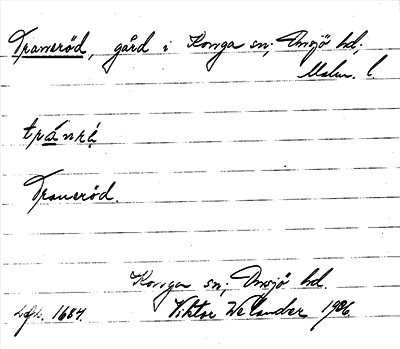 Traneröd, gård i Konga sn; Onsjö hd;
Malm. l.
tránrḗ
Traneröd.
Konga sn; Onsjö hd.
Viktor Welander 1986
1684.